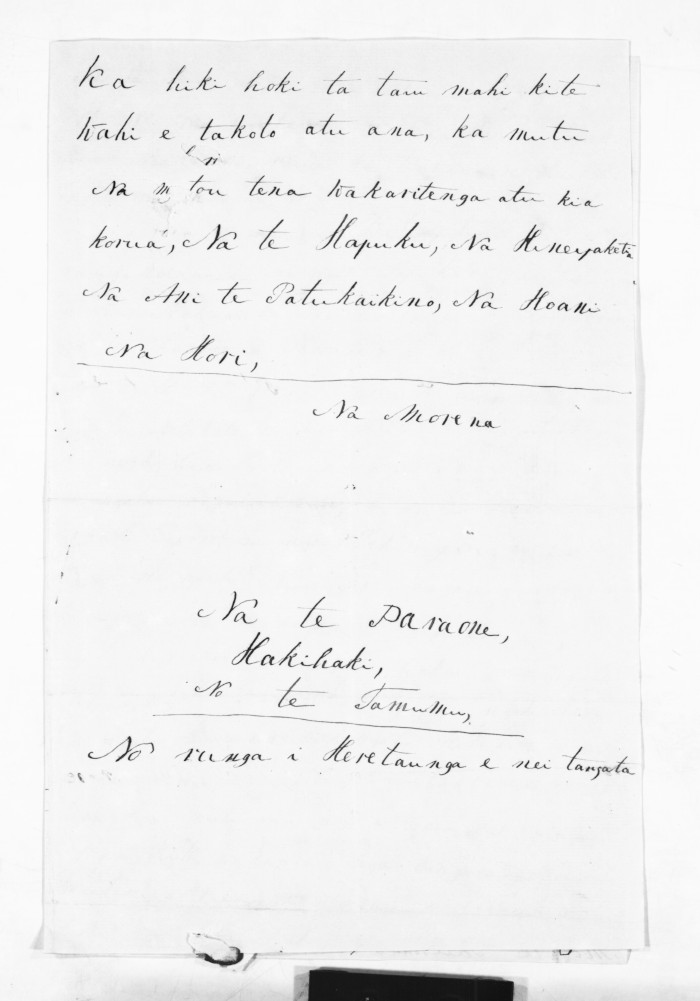 Ka hiki hoki ta tau mahi kite
kahi e takoto atu ana, ka mutu
Na tou tena kakaritenga atu kia
korua, Na te Hapuku, Na Hineipaketia
Na Ani te Patukaikino, Na Hoani
Na Hori,
Na Morena
Na te Paraone,
Hakihaki,
No te Tamumu,
No runga i Heretaunga e nei tangata